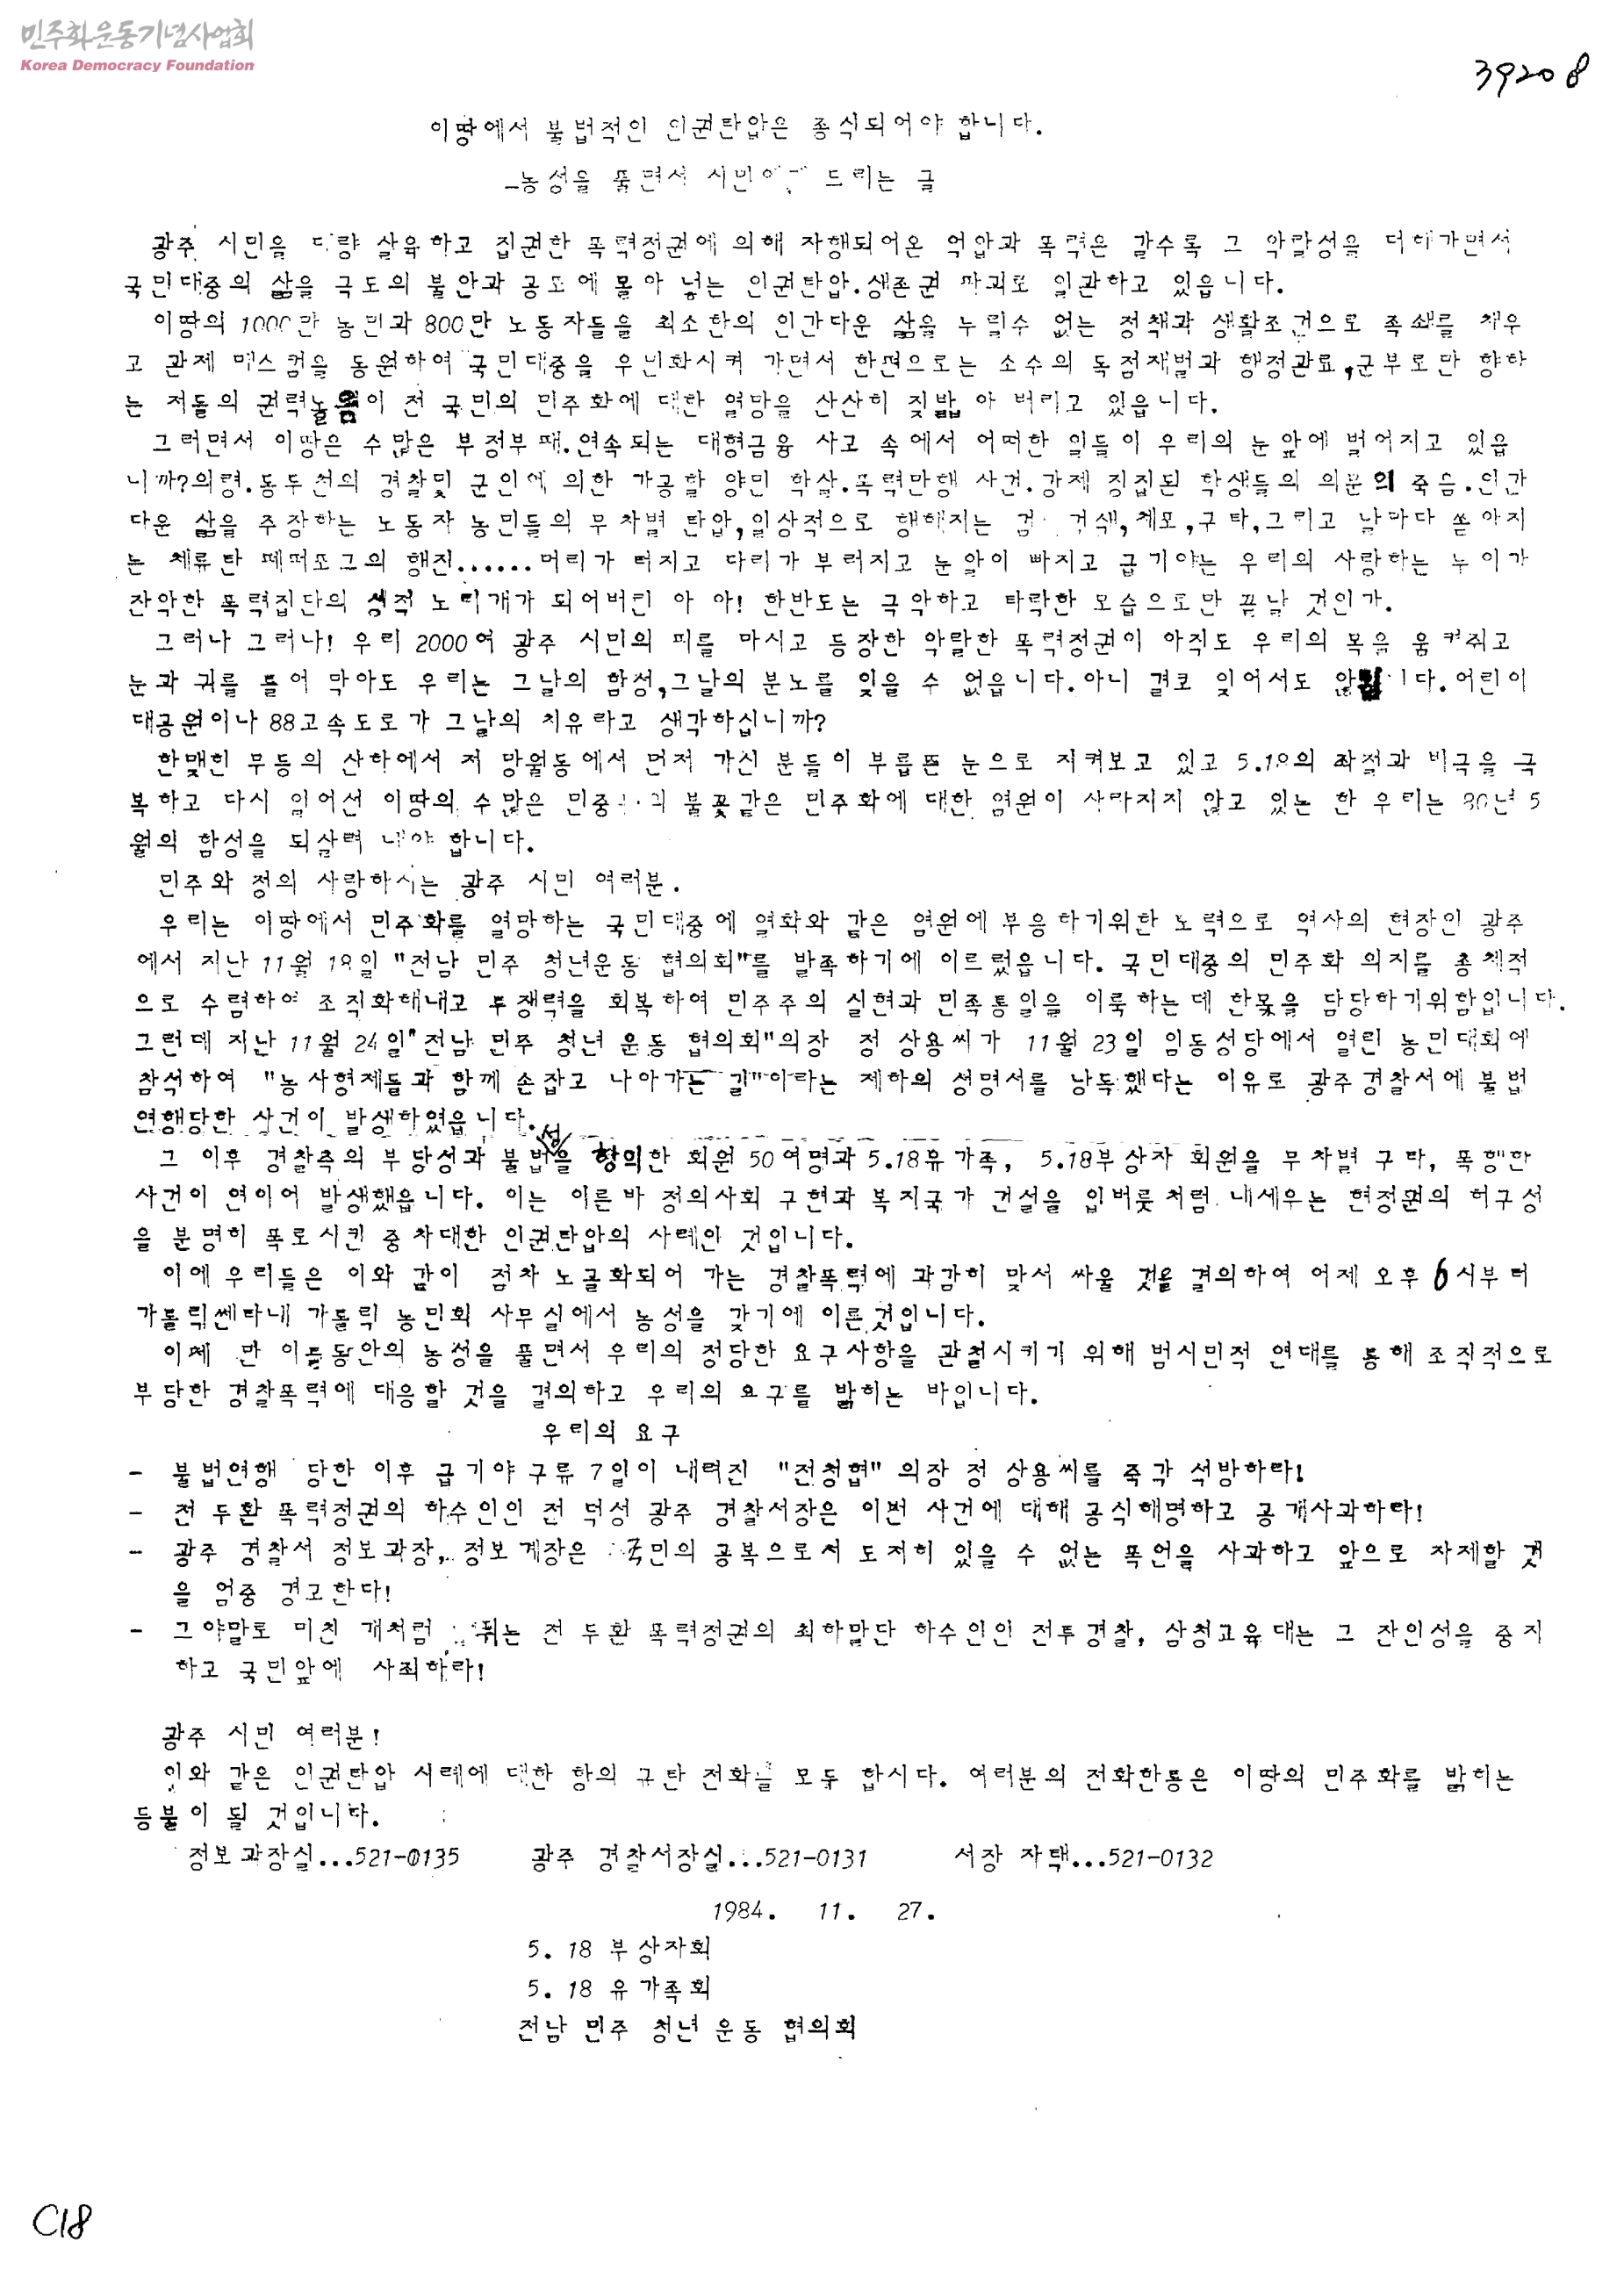 민주화운동기념사업회
Korea Democracy Foundation
39208
이땅에서 불법적인 인권탄압은 종식되어야 합니다.
-농성을 풀면서 시민에게 드리는 글
광주 시민을 대량 살육하고 집권한 폭력정권에 의해 자행되어온 억압과 폭력은 갈수록 그 악랄성을 더해가면서
국민대중의 삶을 극도의 불안과 공포에 몰아 넣는 인권탄압.생존권 파괴로 일관하고 있읍니다.
이땅의 1000만 농민과 800만 노동자들을 최소한의 인간다운 삶을 누릴수 없는 정책과 생활조건으로 족쇄를 채우
고 관제 매스컴을 동원하여 국민대중을 우민화시켜 가면서 한편으로는 소수의 독점재벌과 행정관료,군부로만 향하
는 저들의 권력놀음이 전 국민의 민주화에 대한 열망을 산산히 짓밟아 버리고 있읍니다.
그러면서 이땅은 수많은 부정부패.연속되는 대형금융 사고 속에서 어떠한 일들이 우리의 눈앞에 벌어지고 있읍
니까?의령.동두천의 경찰및 군인에 의한 가공할 양민 학살.폭력만행 사건.강제 징집된 학생들의 의문의 죽음.인간
다운 삶을 주장하는 노동자 농민들의 무차별 탄압,일상적으로 행해지는 검 검색,체포,구타,그리고 날마다 쏟아지
는 체류탄 페퍼포그의 행진......머리가 터지고 다리가 부러지고 눈알이 빠지고 급기야는 우리의 사랑하는 누이가
잔악한 폭력집단의 성적 노리개가 되어버린 아 아! 한반도는 극악하고 타락한 모습으로만 끝날 것인가.
그러나 그러나! 우리 2000여 광주 시민의 피를 마시고 등장한 악랄한 폭력정권이 아직도 우리의 목을 움켜쥐고
눈과 귀를 틀어 막아도 우리는 그날의 함성,그날의 분노를 잊을 수 없읍니다.아니 결코 잊어서도 않됩니다.어린이
대공원이나 88고속도로가 그날의 치유라고 생각하십니까?
한맺힌 무등의 산하에서 저 망월동에서 먼저 가신 분들이 부릅뜬 눈으로 지켜보고 있고 5.18의 좌절과 비극을 극
복하고 다시 일어선 이땅의 수많은 민중들의 불꽃같은 민주화에 대한 염원이 사라지지 않고 있는 한 우리는 80년 5
월의 함성을 되살려 내야 합니다.
민주와 정의 사랑하시는 광주 시민 여러분.
우리는 이땅에서 민주화를 열망하는 국민대중에 열화와 같은 염원에 부응하기위한 노력으로 역사의 현장인 광주
에서 지난 11월 18일 "전남 민주 청년운동 협의회"를 발족하기에 이르렀읍니다. 국민대중의 민주화 의지를 총체적
으로 수렴하여 조직화해내고 투쟁력을 회복하여 민주주의 실현과 민족통일을 이룩하는데 한몫을 담당하기위함입니다.
그런데 지난 11월 24일"전남 민주 청년 운동 협의회"의장 정 상용씨가 11월 23일 임동성당에서 열린 농민대회에
참석하여 "농사형제들과 함께 손잡고 나아가는 길"이라는 제하의 성명서를 낭독했다는 이유로 광주경찰서에 불법
연행당한 사건이 발생하였읍니다.
그 이후 경찰측의 부당성과 불법성을 항의한 회원 50여명과 5.18유가족, 5.18부상자 회원을 무차별 구타, 폭행한
사건이 연이어 발생했읍니다. 이는 이른바 정의사회 구현과 복지국가 건설을 입버릇처럼 내세우는 현정권의 허구성
을 분명히 폭로시킨 중차대한 인권탄압의 사례인 것입니다.
이에 우리들은 이와 같이 점차 노골화되어 가는 경찰폭력에 과감히 맞서 싸울 것을 결의하여 어제 오후 6시부터
가톨릭쎈타내 가톨릭 농민회 사무실에서 농성을 갖기에 이른것입니다.
이제 만 이틀동안의 농성을 풀면서 우리의 정당한 요구사항을 관철시키기 위해 범시민적 연대를 통해 조직적으로
부당한 경찰폭력에 대응할 것을 결의하고 우리의 요구를 밝히는 바입니다.
우리의 요구
- 불법연행 당한 이후 급기야 구류 7일이 내려진 "전청협" 의장 정 상용씨를 즉각 석방하라!
- 전 두환 폭력정권의 하수인인 전 덕성 광주 경찰서장은 이번 사건에 대해 공식해명하고 공개사과하라!
- 광주 경찰서 정보과장, 정보계장은 국민의 공복으로서 도저히 있을 수 없는 폭언을 사과하고 앞으로 자제할 것
을 엄중 경고한다!
- 그야말로 미친 개처럼 뛰는 전 두환 폭력정권의 최하말단 하수인인 전투경찰, 삼청교육대는 그 잔인성을 중지
하고 국민앞에 사죄하라!
광주 시민 여러분!
이와 같은 인권탄압 사례에 대한 항의 규탄 전화를 모두 합시다. 여러분의 전화한통은 이땅의 민주화를 밝히는
등불이 될 것입니다.
정보과장실...521-0135 광주 경찰서장실...521-0131 서장 자택...521-0132
1984. 11. 27.
5. 18 부상자회
5. 18 유가족회
전남 민주 청년 운동 협의회
C18